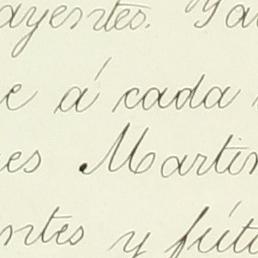 ayentes. Para
e á cada
es Martin
ntes y fútu